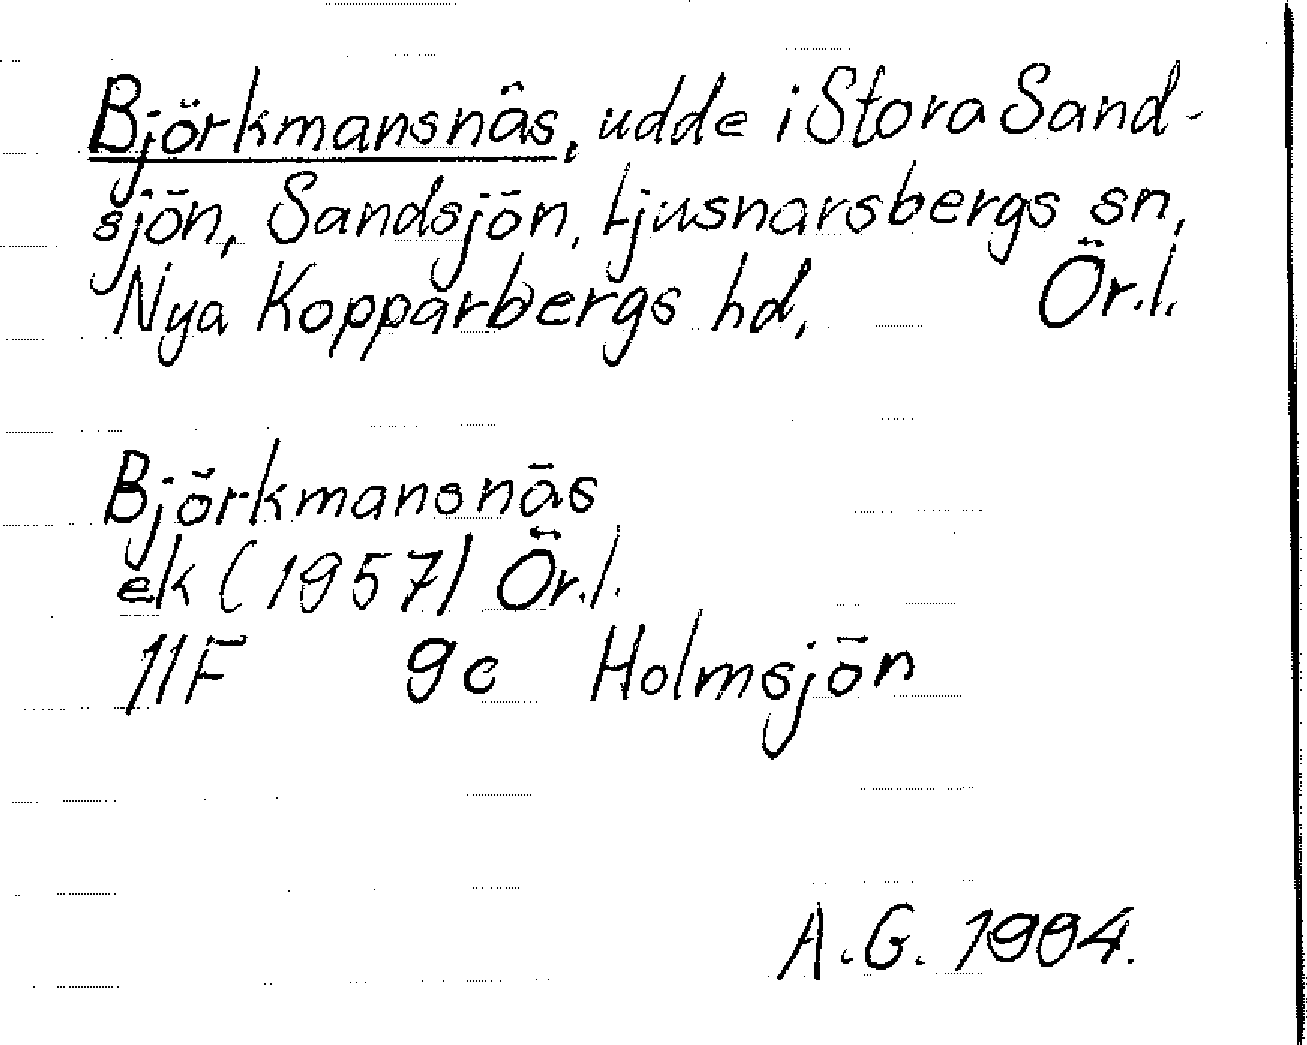 Björkmansnäs, udde i Stora Sand-
sjön, Sandsjön, Ljusnarsbergs sn,
Nya Kopparbergs hd, Ör.l.
Björkmansnäs
ek (1957) Ör.l.
11F 9c Holmsjön
A.G. 1984.